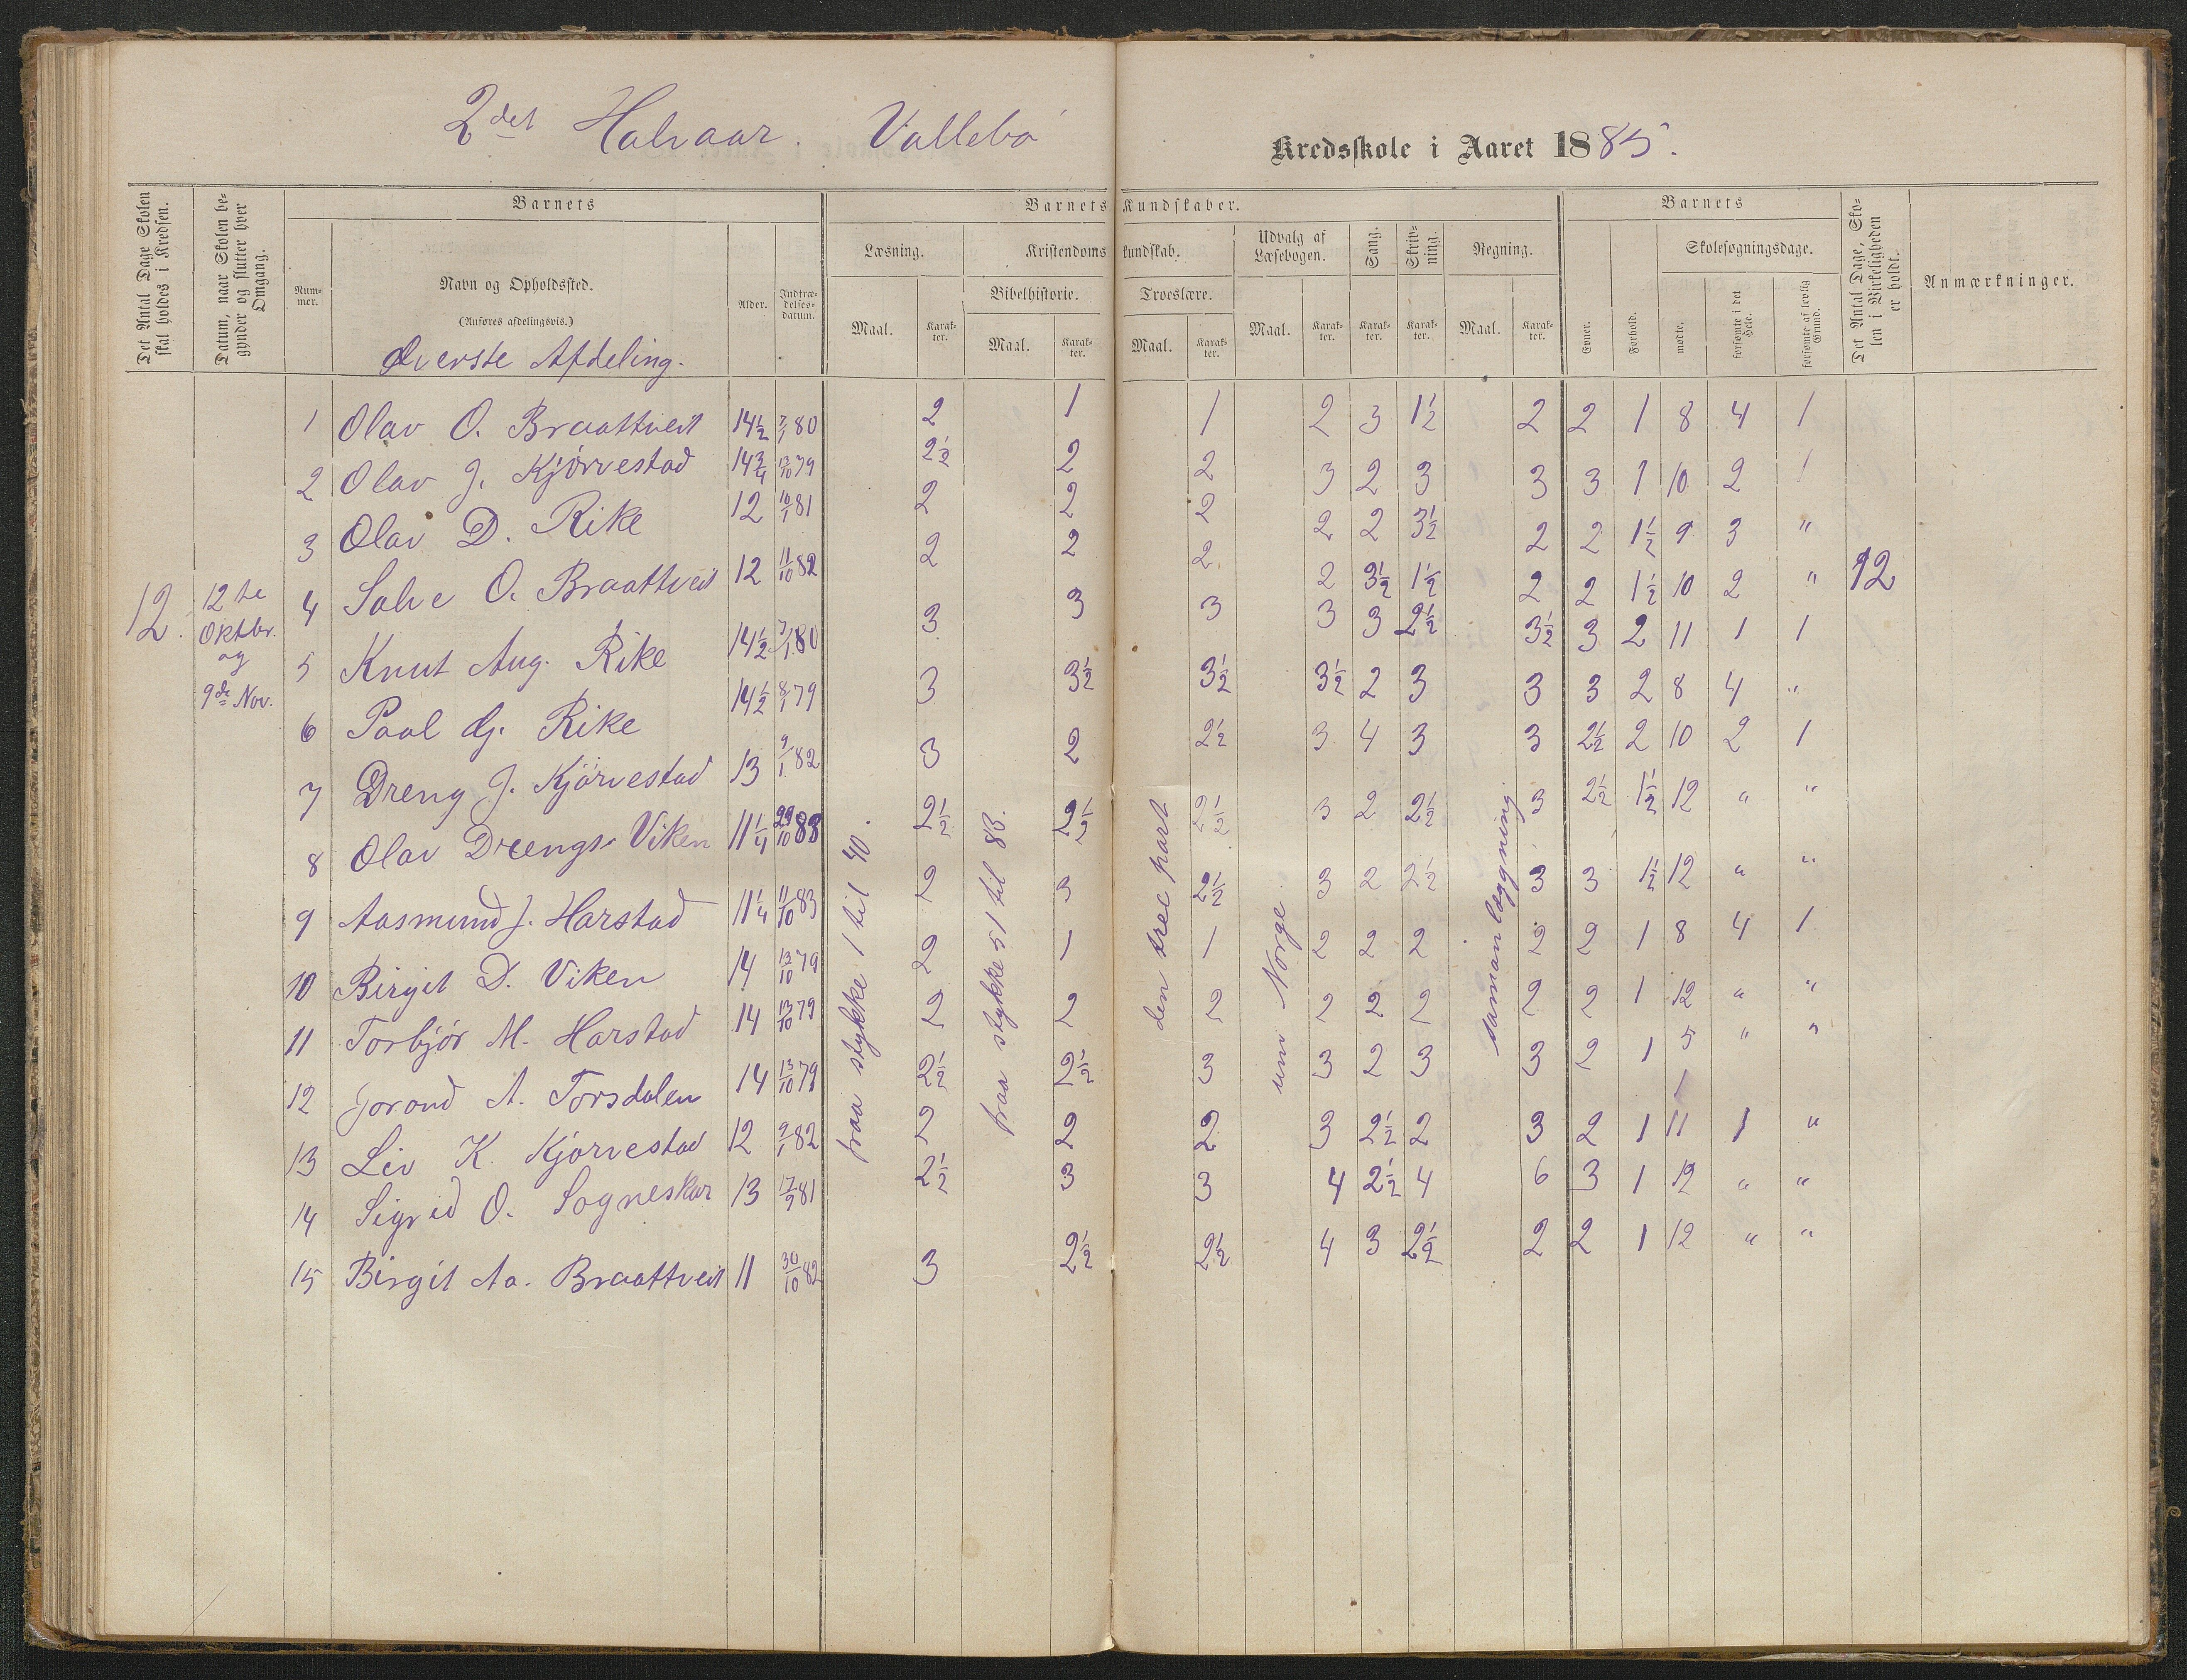 2det Halvaar. Vallebø Kredsskole i Aaret 1885.
Det Antal Dage Skolen skal holdes i Kredsen.
Datum, naar Skolen begynder og slutter hver Omgang.
Barnets
Nummer.
Navn og Opholdssted.
(Anføres afdelingsvis.)
Alder.
Indtrædelsesdatum.
Barnets Kundskaber.
Læsning.
Maal.
Karakter.
Kristendomskundskab.
Bibelhistorie.
Maal.
Karakter.
Troeslære.
Maal.
Karakter.
Udvalg af Læsebogen.
Maal.
Karakter.
Sang.
Karakter.
Skrivning.
Karakter.
Regning.
Maal.
Karakter.
Barnets
Evner.
Forhold.
Skolesøgningsdage.
mødte.
forsømte i det Hele.
forsømte af lovlig Grund.
Det Antal Dage, Skolen i Virkeligheden er holdt.
Anmærkninger.
Øverste Afdeling.
12. 12te Oktbr. og 9de Nov.
fraa stykke 1 til 40.
fraa stykke 51 til 83.
den tree part
um Norge
samanlæggning.
12
1 Olav O. Braattveit 14½ 7/1 80 2 1 1 2 3 1½ 2 2 1 8 4 1
2 Olav J. Kjørvestad 14¾ 13/10 79 2½ 2 2 3 2 3 3 3 1 10 2 1
3 Olav D. Rike 12 10/1 81 2 2 2 2 2 3½ 2 2 1½ 9 3 "
4 Salve O. Braattveit 12 11/10 82 2 2 2 2 3½ 1½ 2 2 1½ 10 2 "
5 Knut Aug. Rike 14½ 7/1 80 3 3 3 3 3 2½ 3½ 3 2 11 1 1
6 Paal Gj. Rike 14½ 8/1 79 3 3½ 3½ 3½ 2 3 3 3 2 8 4 "
7 Dreng J. Kjørvestad 13 9/1 82 3 2 2½ 3 4 3 3 2½ 2 10 2 1
8 Olav Drengs. Viken 11¼ 29/10 83 2½ 2½ 2½ 3 2 2½ 3 2½ 1½ 12 " "
9 Aasmund J. Harstad 11¼ 11/10 83 2 3 2½ 3 2 2½ 3 3 1½ 12 " "
10 Birgit D. Viken 14 13/10 79 2 1 1 2 2 2 2 2 1 8 4 1
11 Torbjør M. Harstad 14 13/10 79 2 2 2 2 2 2 2 2 1 12 " "
12 Jorond A. Torsdalen 14 13/10 79 2½ 2½ 3 3 2 3 3 2 1 5 " "
13 Liv K. Kjørvestad 12 9/1 82 2 2 2 3 2½ 2 3 2 1 11 1 "
14 Sigrid O. Sogneskar 13 17/9 81 2½ 3 3 4 2½ 4 6 3 1 12 " "
15 Birgit Aa. Braattveit 11 30/10 82 3 2½ 2½ 4 3 2½ 2 2 1 12 " "